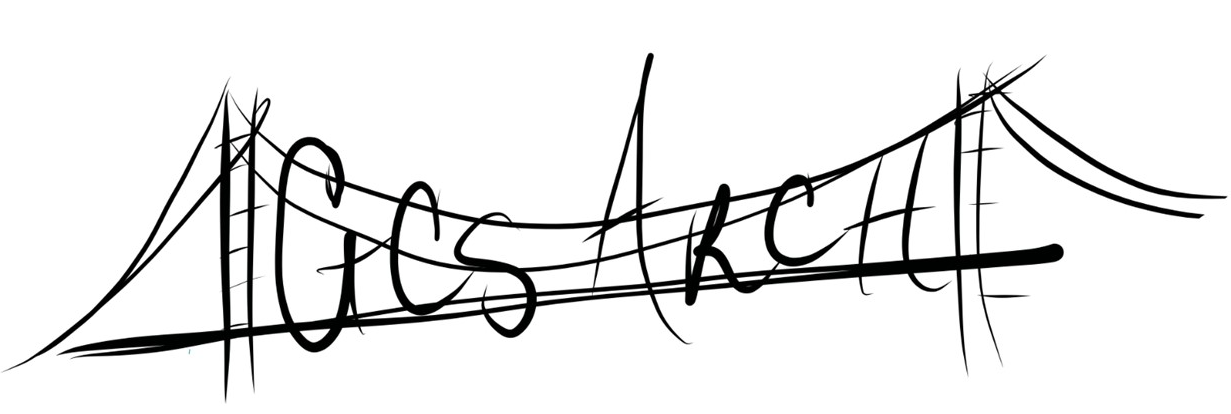 GCS ARCH